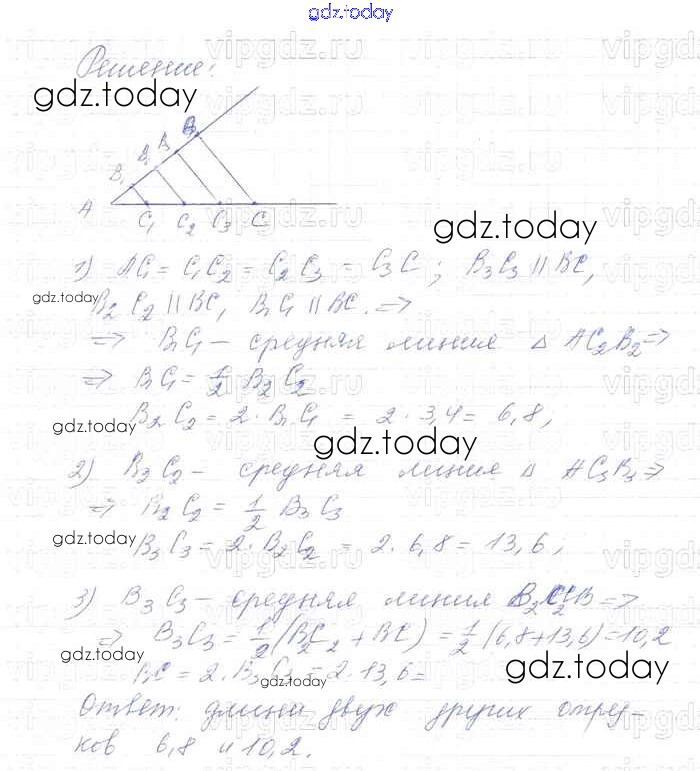 gdz.today
Решение:
gdz.today
B₁ B₂ B₃ B
A C₁ C₂ C₃ C
gdz.today
1) AC₁ = C₁C₂ = C₂C₃ = C₃C ; B₃C₃ || BC,
gdz.today
B₂C₂ || BC, B₁C₁ || BC. =>
=> B₁C₁ – средняя линия Δ AC₂B₂ =>
=> B₁C₁ = 1/2 B₂C₂
B₂C₂ = 2 · B₁C₁ = 2 · 3,4 = 6,8 ;
gdz.today
gdz.today
2) B₂C₂ – средняя линия Δ AC₃B₃ =>
=> B₂C₂ = 1/2 B₃C₃
gdz.today
B₃C₃ = 2 · B₂C₂ = 2 · 6,8 = 13,6 ;
3) B₃C₃ – средняя линия B₂C₂CB =>
=> B₃C₃ = 1/2 (B₂C₂ + BC) = 1/2 (6,8 + 13,6) = 10,2
gdz.today
gdz.today
BC = 2 · B₃C₃ = 2 · 13,6 =
gdz.today
Ответ: длины двух других отрез-
ков 6,8 и 10,2.